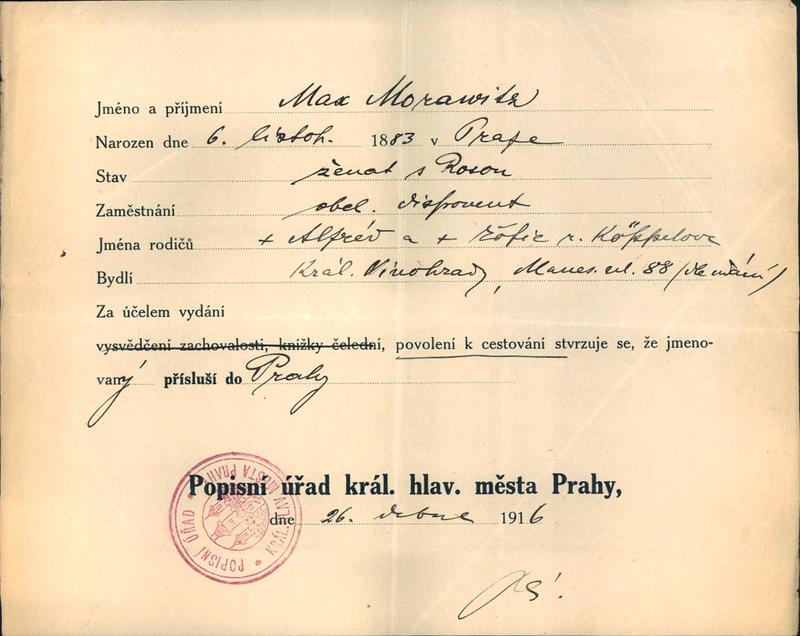 Jméno a příjmení Max Morawitz
Narozen dne 6. listop. 1883 v Praze
Stav ženat s Rosou
Zaměstnání obch. disponent
Jména rodičů + Alfréd a + Žofie r. Köppelova
Bydlí Král. Vinohrady, Manes. ul. 88
Za účelem vydání
vysvědčení zachovalosti, knížky čelední, povolení k cestování stvrzuje se, že jmeno-
vaný přísluší do Prahy
Popisní úřad král. hlav. města Prahy,
dne 26. dubna 1916
POPISNÍ ÚŘAD * KRÁL. HLAV. MĚSTA PRAHY *